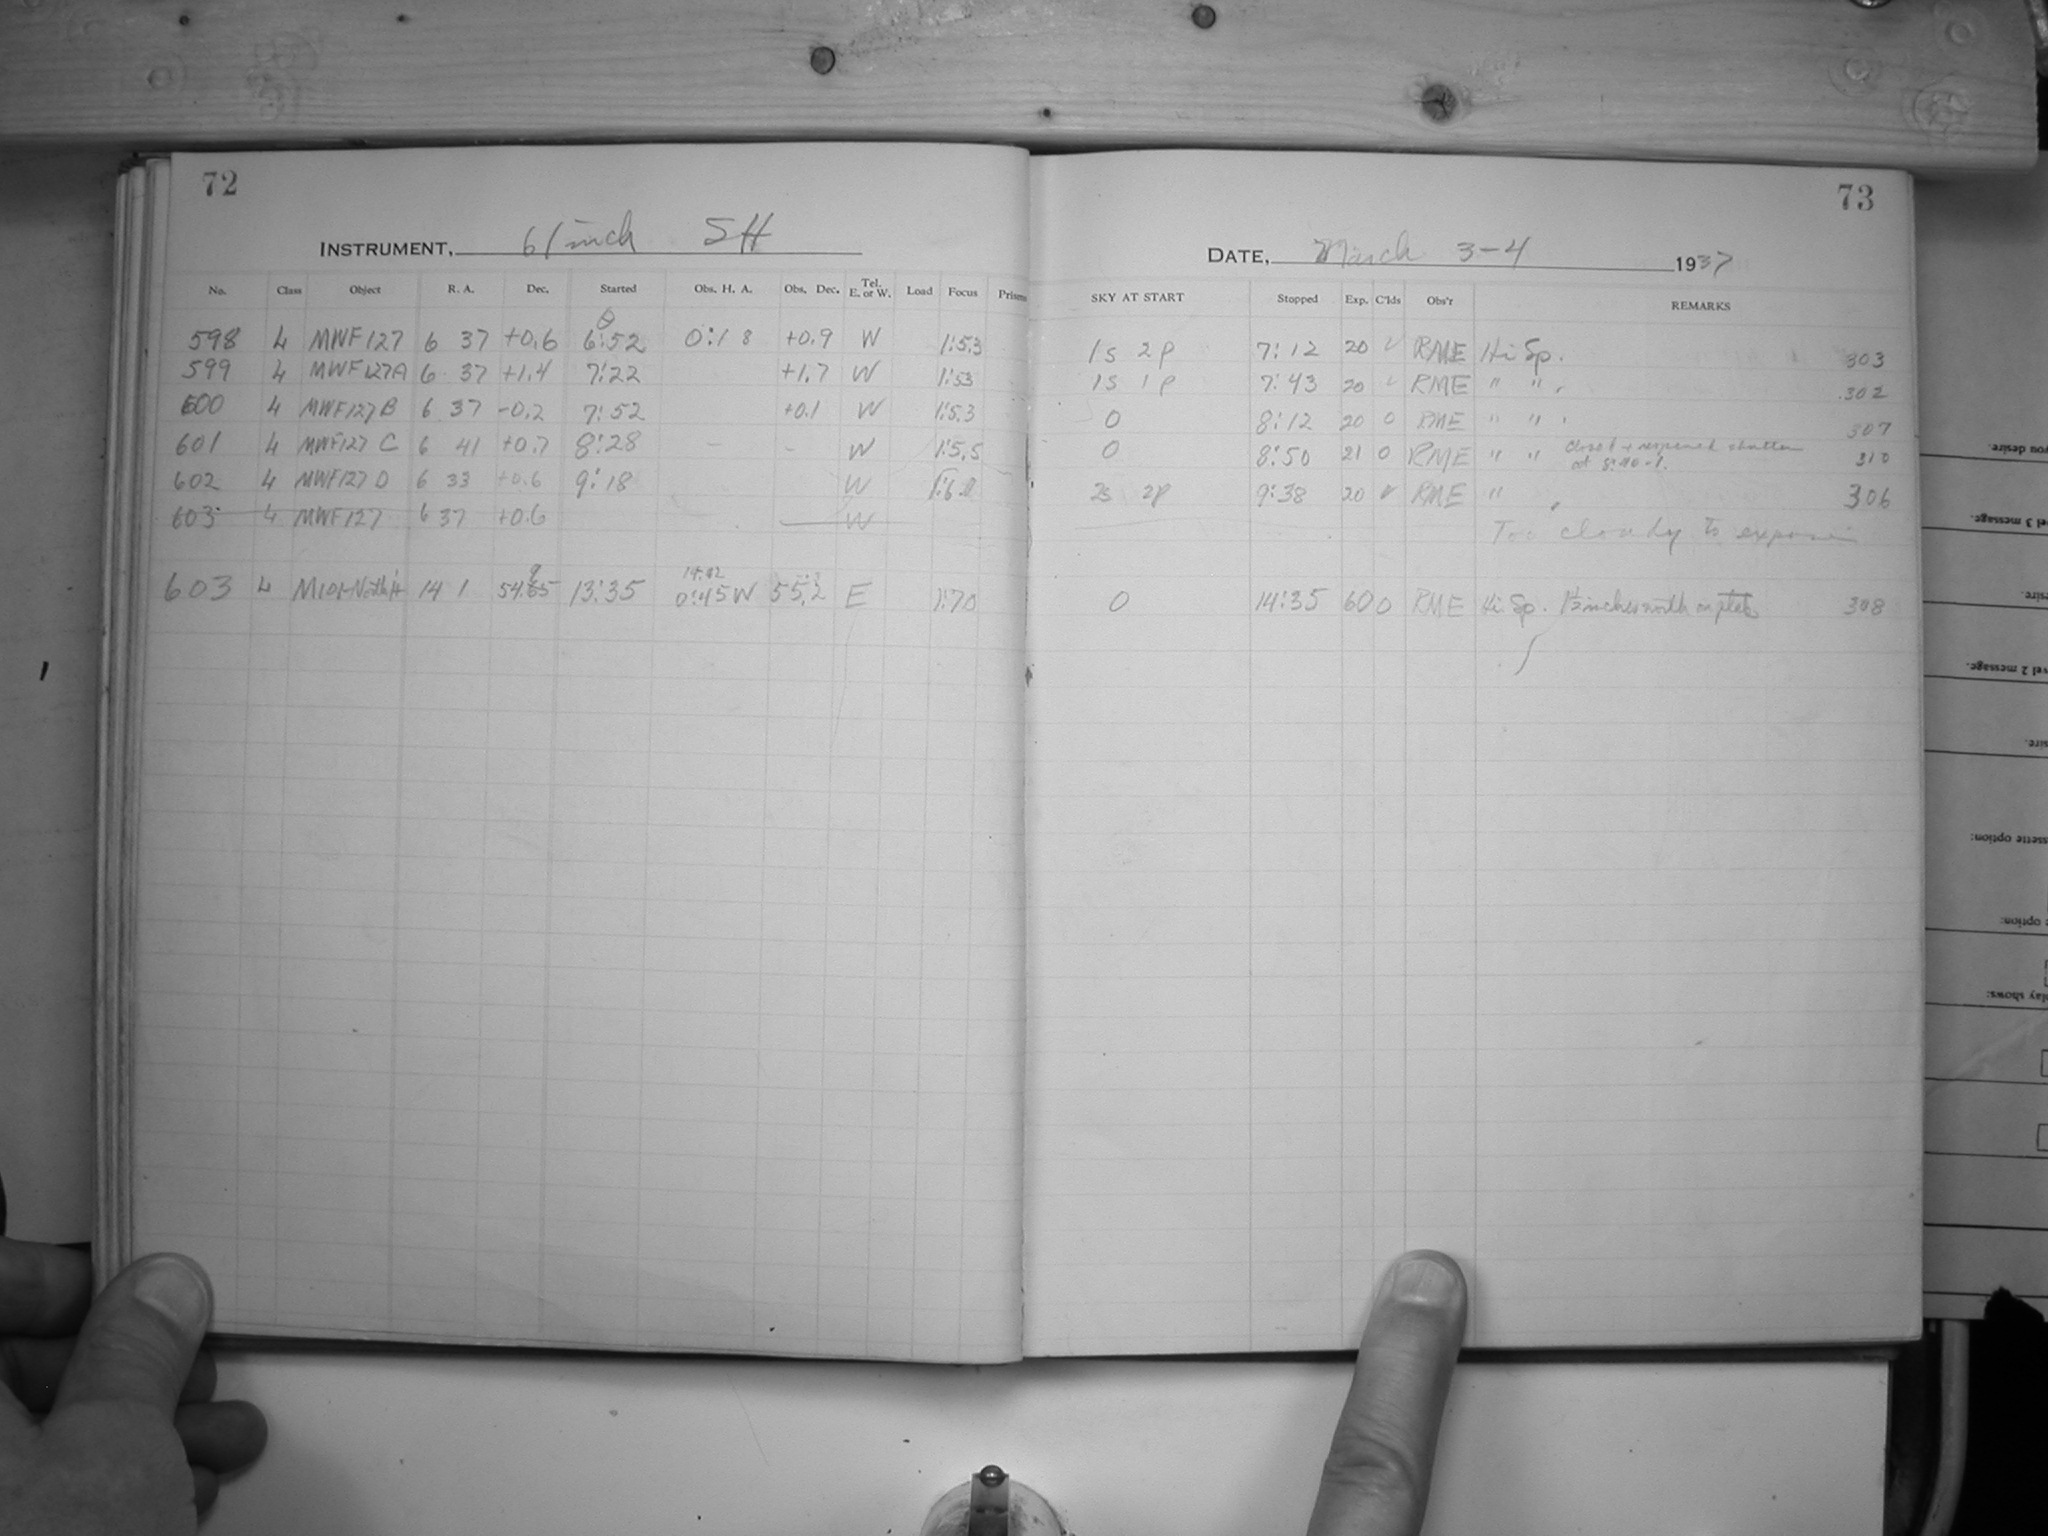 72
INSTRUMENT, 61 inch SH
No. Class Object R. A. Dec. Started Obs. H. A. Obs. Dec. Tel. E. or W. Load Focus Prisms
598 4 MWF127 6 37 +0.6 6:52 0:18 +0.9 W 1:5.3
599 4 MWF127A 6 37 +1.4 7:22 +1.7 W 1:53
600 4 MWF127B 6 37 -0.2 7:52 +0.1 W 1:5.3
601 4 MWF127 C 6 41 +0.7 8:28 - - W 1:5.5
602 4 MWF127 D 6 33 +0.6 9:18 W
603 4 MWF127 6 37 +0.6 W
603 4 M101-North 14 1 13:35 0:45W 55.2 E 1:70
73
DATE, March 3-4 1937
SKY AT START Stopped Exp. C'lds Obs'r REMARKS
1s 2p 7:12 20 RME Hi Sp. 303
1s 1p 7:43 20 RME " " 302
0 8:12 20 0 RME " " 307
0 8:50 21 0 RME " " closed + reopened shutter at 8:40-1. 310
2s 2p 9:38 20 RME " 306
Too cloudy to expose
0 14:35 60 0 RME Hi Sp. inches north on plate 308
you desire.
vel 3 message.
sire.
vel 2 message.
sire.
ssette option:
e option:
play shows: